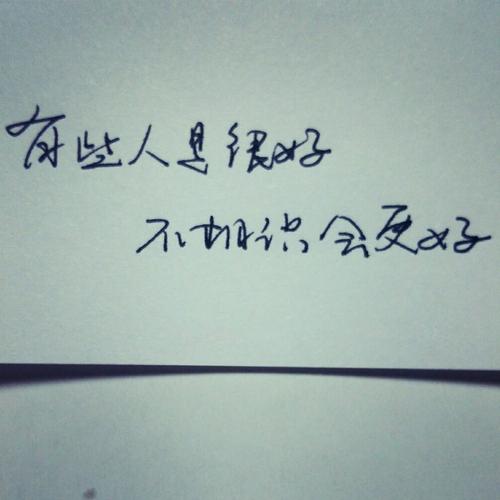 有些人是很好
不相识会更好